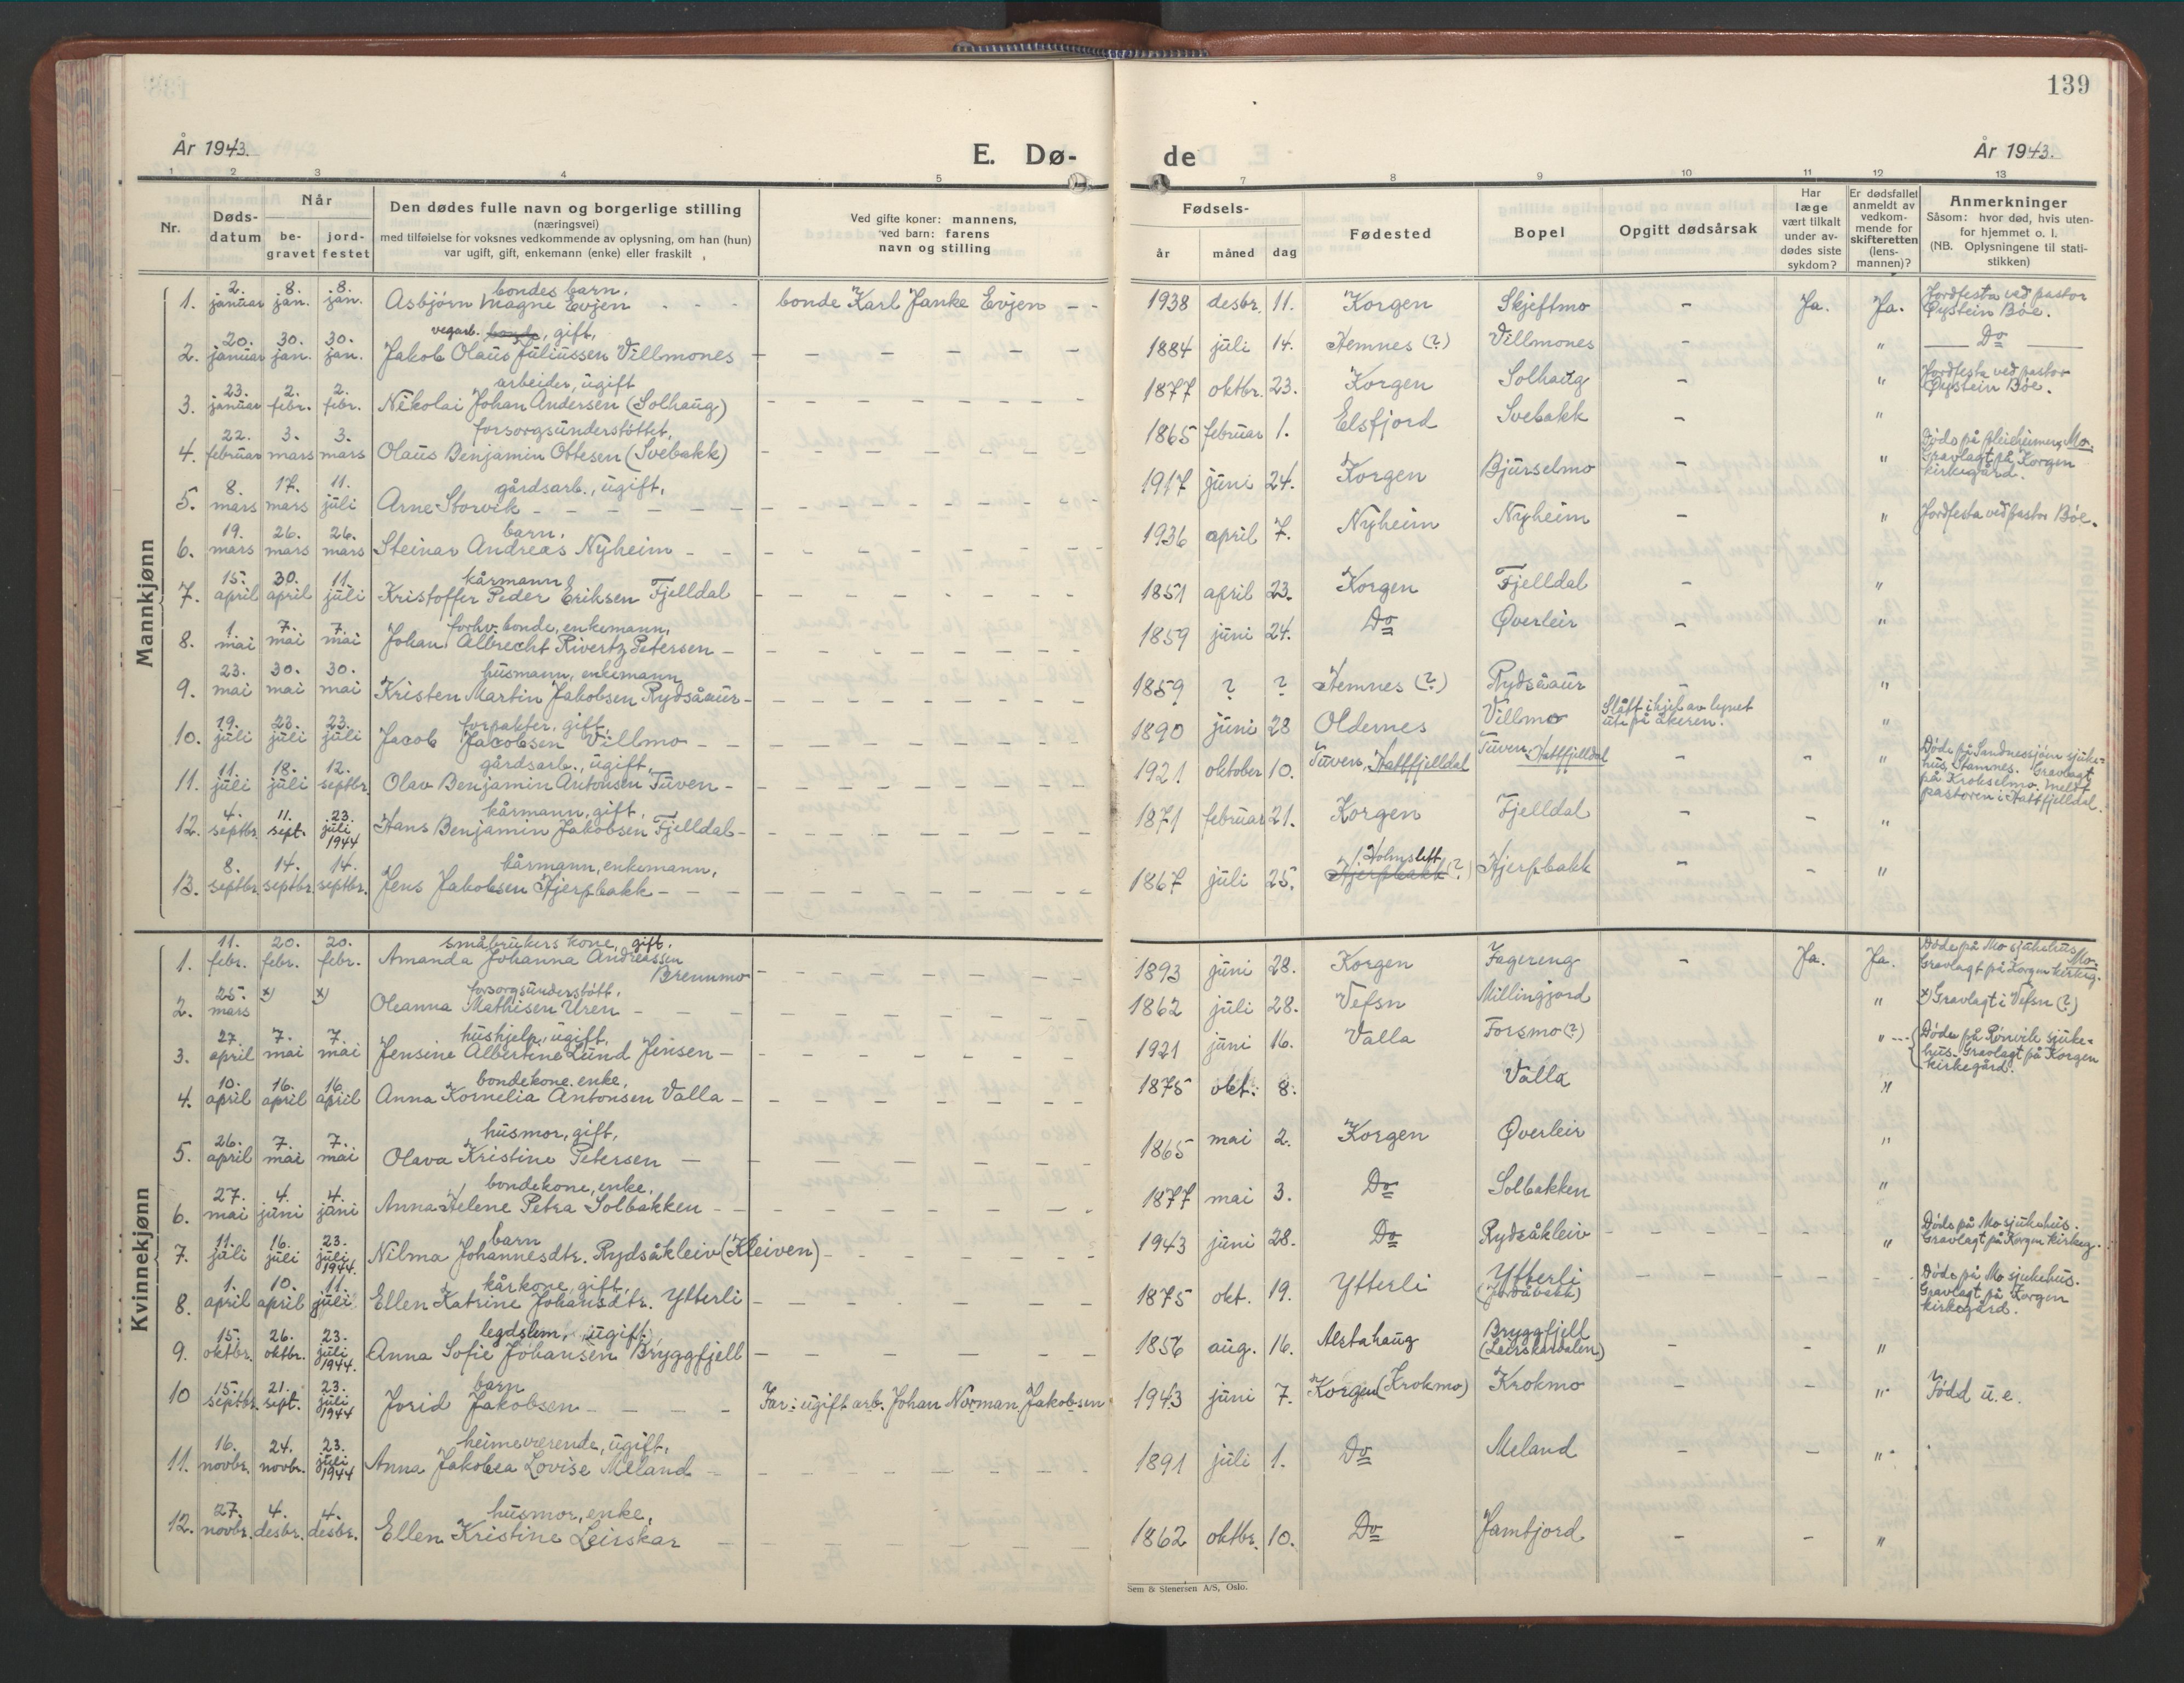 139
År 1943.
E. Dø-
de
År 1943.
1 2 3 4 5 7 8 9 10 11 12 13
Nr.
Døds-
datum
Når
be-
gravet
jord-
festet
Den dødes fulle navn og borgerlige stilling
(næringsvei)
med tilføielse for voksnes vedkommende av oplysning, om han (hun)
var ugift, gift, enkemann (enke) eller fraskilt
Ved gifte koner: mannens,
ved barn: farens
navn og stilling
Fødsels-
år måned dag
Fødested
Bopel
Opgitt dødsårsak
Har
læge
vært tilkalt
under av-
dødes siste
sykdom?
Er dødsfallet
anmeldt av
vedkom-
mende for
skifteretten
(lens-
mannen)?
Anmerkninger
Såsom: hvor død, hvis uten-
for hjemmet o. l.
(NB. Oplysningene til stati-
stikken)
Mannkjønn
1. 2. januar 8. jan. 8. jan. bondes barn,
Asbjörn Magne Evjen - - - bonde Karl Janke Evjen - - 1938 desbr. 11. Korgen Skjeftmo - Ja. Ja. Jordfesta ved pastor
Øystein Böe.
2. 20. januar 30. jan. 30. jan. vegarb. bonde, gift,
Jakob Olaus Juliussen Villmones - - - - - - 1884 juli 14. Hemnes (?) Villmones - " Do
3. 23. januar 2. febr. 2. febr. arbeider, ugift
Nikolai Johan Andersen (Solhaug) - - - - - - 1877 oktbr. 23. Korgen Solhaug - " Jordfesta ved pastor
Øystein Bøe.
4. 22. februar 3. mars 3. mars forsorgsunderstöttet,
Olaus Benjamin Ottesen (Svebakk) - - - - - - 1865 februar 1. Elsfjord Svebakk - " Döde på pleiheimen, Mo.
Gravlagt på Korgen
kirkegård.
5. 8. mars 17. mars 11. juli gårdsarb., ugift,
Arne Storvik - - - - - - 1917 juni 24. Korgen Bjurselmo - "
6. 19. mars 26. mars 26. mars barn,
Steinar Andreas Nyheim - - - - - - 1936 april 7. Nyheim Nyheim - " Jordfesta ved pastor Böe.
7. 15. april 30. april 11. juli kårmann
Kristoffer Peder Eriksen Fjelldal - - - - - - 1851 april 23. Korgen Fjelldal - "
8. 1. mai 7. mai 7. mai forhv. bonde, enkemann,
Johan Albrecht Rivertz Petersen - - - - - - 1859 juni 24. Do Øverleir - "
9. 23. mai 30. mai 30. mai husmann, enkemann
Kristen Martin Jakobsen Rydsåaur - - - - - - 1859 ? ? Hemnes (?) Rydsåaur - "
10. 19. juli 23. juli 23. juli forpakter, gift,
Jacob Jacobsen Villmo - - - - - - 1890 juni 28 Oldernes Villmo Slått ihjel av lynet
ute på åkeren. "
11. 11. juli 18. juli 12. septbr. gårdsarb., ugift,
Olav Benjamin Antonsen Tuven - - - - - - 1921 oktober 10. Tuven, Hattfjelldal Tuven, Hattfjelldal - - " Döde på Sandnessjöen sjuke-
hus, Stamnes. Gravlagt
på Krokselmo. Meldt
pastoren i Hattfjelldal.
12. 4. septbr. 11. sept. 23. juli 1944 kårmann, gift,
Hans Benjamin Jakobsen Fjelldal - - - - - - 1871 februar 21. Korgen Fjelldal - - "
13. 8. septbr. 14. septbr. 14. septbr. kårmann, enkemann,
Jens Jakobsen Hjerpbakk - - - - - - 1867 juli 25. Holmslett
Hjerpbakk (?) Hjerpbakk - - "
Kvinnekjønn
1. 11. febr. 20. febr. 20. febr. småbrukers kone, gift,
Amanda Johanna Andreassen
Brennmo - - - - - - 1893 juni 28. Korgen Fagereng - Ja. Ja. Döde på Mo sjukehus, Mo.
Gravlagt på Korgen kirkeg.
2. 25. mars x) x) forsorgsunderstött,
Oleanna Mathisen Uren - - - - - - 1862 juli 28. Vefsn Millingjord " x) Gravlagt i Vefsn (?)
3. 27. april 7. mai 7. mai hushjelp, ugift,
Jensine Albertine Lund Jensen - - - - - - 1921 juni 16. Valla Forsmo (?) " Döde på Rörvik sjuke-
hus. Gravlagt på Korgen
kirkegård.
4. 10. april 16. april 16. april bondekone, enke,
Anna Kornelia Antonsen Valla - - - - - - 1875 okt. 8. Valla "
5. 26. april 7. mai 7. mai husmor, gift,
Olava Kristine Petersen - - - - - - 1865 mai 2. Korgen Øverleir "
6. 27. mai 4. juni 4. juni bondekone, enke,
Anna Helene Petra Solbakken - - - - - - 1877 mai 3. Do Solbakken "
7. 11. juli 16. juli 23. juli 1944. barn
Nilma Johannesdtr. Rydsåkleiv (Kleiven) - - - - - - 1943 juni 28. Do Rydsåkleiv - - - - - " Döde på Mo sjukehus.
Gravlagt på Korgen kirkeg.
8. 1. april 10. april 11. juli kårkone, gift,
Ellen Katrine Johansdtr. Ytterli - - - - - - 1875 okt. 19. Ytterli Ytterli
(Jordåbakk) - - - - - Döde på Mo sjukehus.
Gravlagt på Korgen
kirkegård.
9. 15. oktbr. 26. oktbr. 23. juli 1944. legdslem, ugift,
Anna Sofie Johansen Bryggfjell - - - - - - 1856 aug. 16. Alstahaug Bryggfjell
(Leirskardalen) - - "
10 15. septbr. 21. sept. 23. juli 1944 barn
Jorid Jakobsen - - - - Far: ugift arb. Johan Norman Jakobsen 1943 juni 7. Korgen (Krokmo) Krokmo - - " Född u.e.
11. 16. novbr. 24. novbr. 23. juli 1944 heimeværende, ugift,
Anna Jakobea Lovise Meland - - - - - - 1891 juli 1. Do Meland - - "
12. 27. novbr. 4. desbr. 4. desbr. husmor, enke,
Ellen Kristine Leirskar - - - - - - 1862 oktbr. 10. Do Jamtjord - - "
Sem & Stenersen A/S, Oslo.